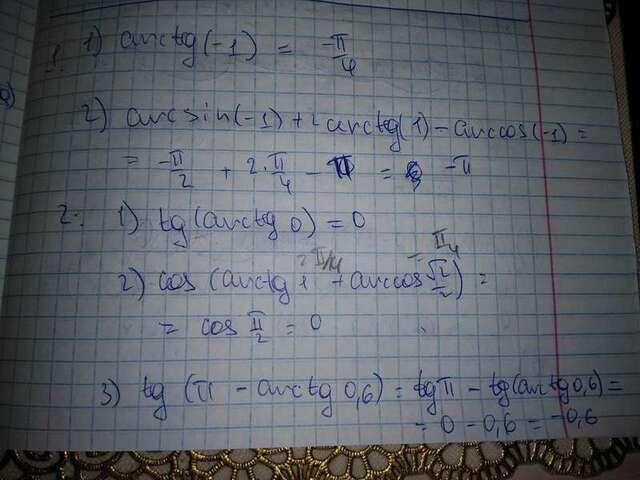 1. 1) arctg(-1) = -π/4
2) arcsin(-1) + 2arctg(1) - arccos(-1) =
= -π/2 + 2·π/4 - π = -π
2. 1) tg(arctg 0) = 0
= π/4 = π/4
2) cos(arctg 1 + arccos √2/2) =
= cos π/2 = 0
3) tg(π - arctg 0,6) = tgπ - tg(arctg 0,6) =
= 0 - 0,6 = -0,6